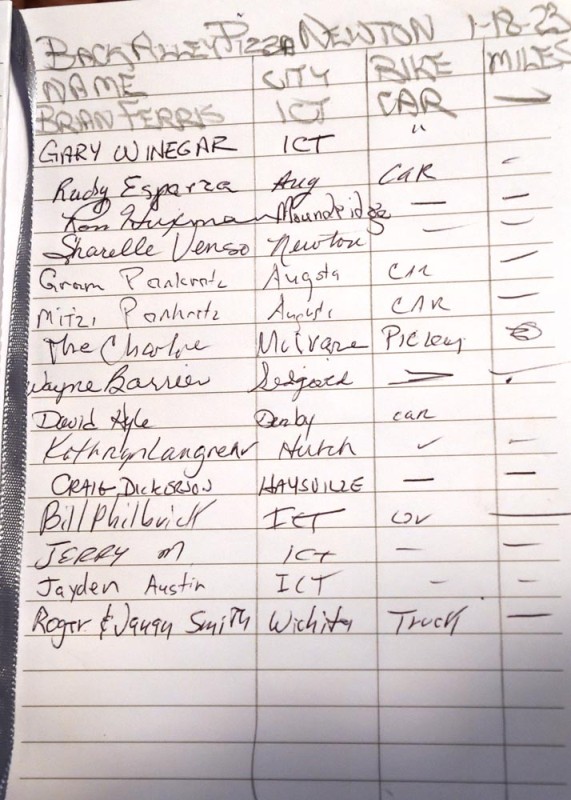 BACK ALLEY PIZZA NEWTON 1-18-23
NAME CITY BIKE MILES
BRAN FERRIS ICT CAR —
GARY WINEGAR ICT "
Rudy Esparza Aug CAR -
Ron Huxman Moundridge — -
Sharelle Venso Newton — -
Gram Pankratz Augsta CAR —
Mitzi Pankratz CAR —
The Charlie Mulvane
Wayne Barrier Sedgwick —
David Hyle Derby car
Kathryn Langrehr Hutch ✓ -
CRAIG DICKERSON HAYSVILLE — -
Bill Philbrick ICT —
JERRY M ICT — -
Jayden Austin ICT - -
Roger & Smith Wichita Truck —